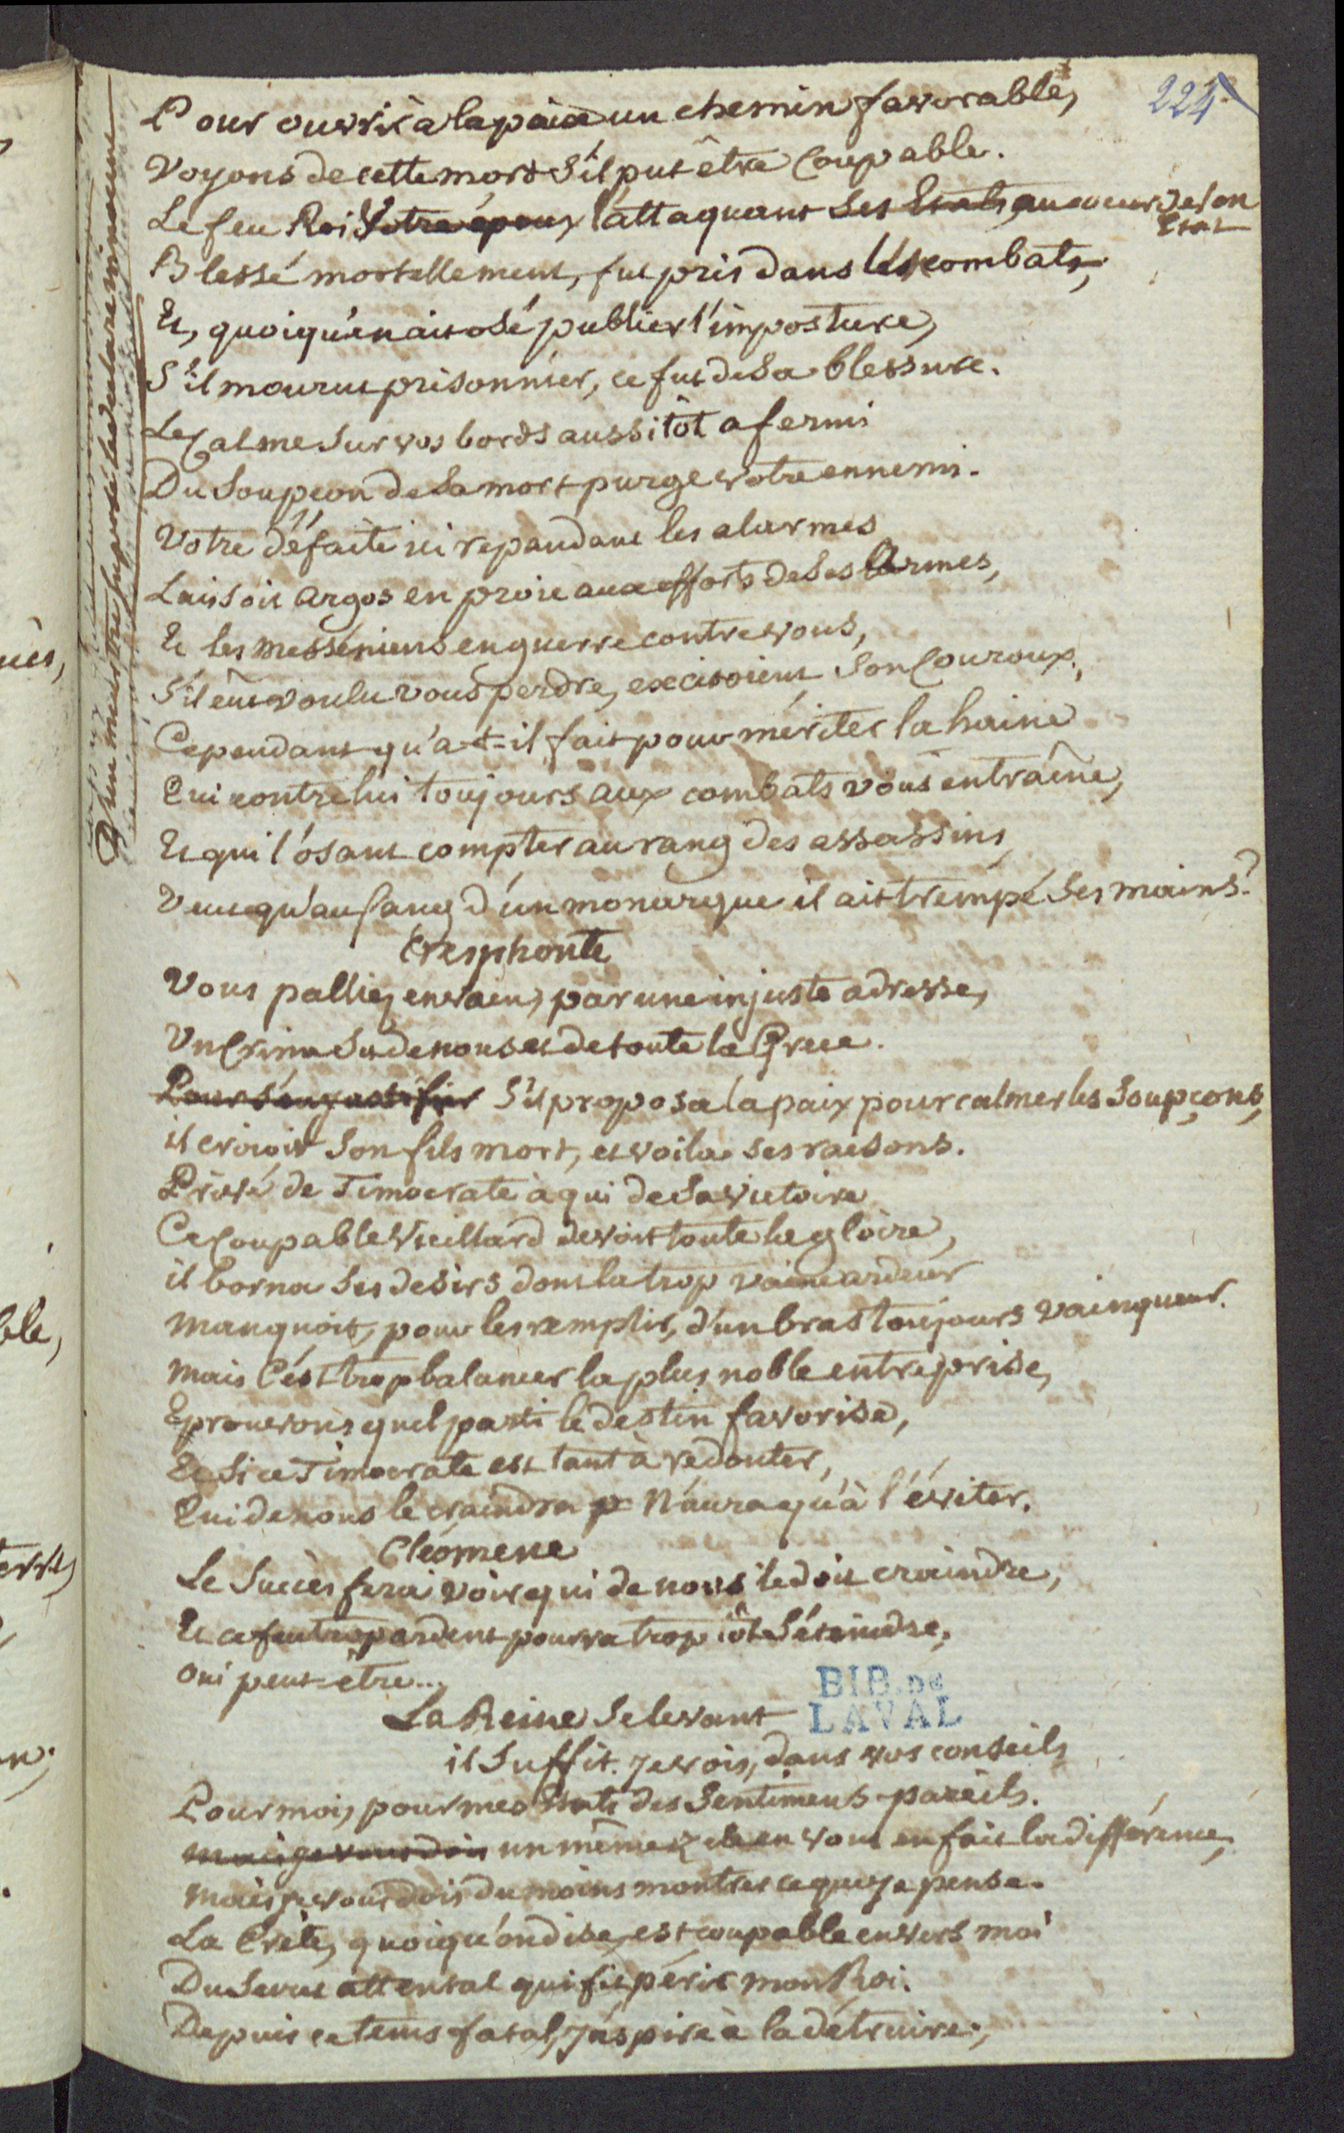 224
Pour ouvrir à la paix un chemin favorable,
Voyons de cette mort s'il put être coupable.
Le feu Roi Votre époux l'attaquant ses Etats, au coeur de son Etat
Blessé mortellement, fut pris dans les combats,
Et, quoiqu'on ait osé publier l'imposture,
S'il mourut prisonnier, ce fut de sa blessure.
Le Calme sur vos bords aussitôt afermi
Du Soupçon de sa mort purge votre ennemi.
Votre défaite ici repandant les alarmes
Laissoit Argos en proie aux efforts de ses Armes,
Et les Messéniens en guerre contre vous,
S'il eût voulu vous perdre, excitoient son Couroux,
Cependant qu'a-t-il fait pour mériter la haine
Qui contre lui toujours aux combats vous entraîne,
Et qui l'osant compter au rang des assassins,
Veut qu'au sang d'un monarque il ait trempé ses mains?
Cresphonte
Vous palliez en vain, par une injuste adresse,
Un Crime su de nous et de toute la Grece.
Pour s'en justifier S'il proposa la paix pour calmer les Soupçons,
il croioit son fils mort, et voila ses raisons.
Privé de Timocrate à qui de sa victoire
Ce Coupable Vieillard devoit toute la gloire,
il borna ses desirs dont la trop vaine ardeur
Manquoit, pour les remplir, d'un bras toujours vainqueur.
Mais C'est trop balancer la plus noble entreprise,
Eprouvons quel parti le destin favorise,
Et si ce Timocrate est tant à redouter,
Qui de nous le craindra N'aura qu'à l'éviter.
Cléomene
Le Succès fera voir qui de nous le doit craindre,
Et ce feu trop ardent pourra trop tôt s'éteindre,
Oui peut-être...
BIB. DE
LAVAL
La Reine se levant
il Suffit. Je vois, dans vos conseils
Pour moi, pour mes Etats des Sentimens pareils.
Mais je vous dois un même zele en vous en fait la différence,
Mais je vous dois du moins montrer ce que je pense.
La Crète, quoiqu'on dise, est coupable envers moi
Du Secret attentat qui fit périr mon Roi.
Depuis ce tems fatal, j'aspire à la détruire,